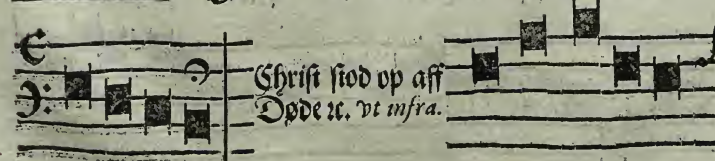 Christ stod op aff
Døde ꝛc. vt infra.